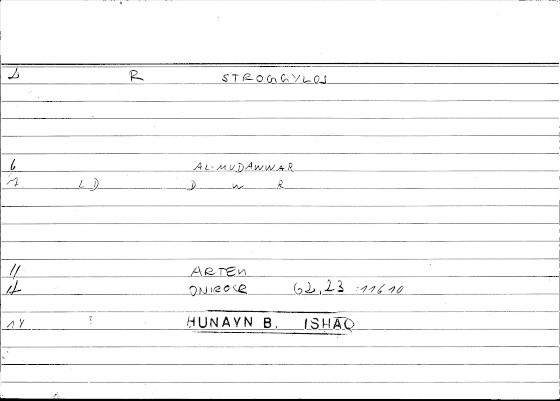 2 R STROGGYLOS
6 AL-MUDAWWAR
7 LD D W R
11 ARTEM
12 ONIROCR 62,23 :11610
14 ? HUNAYN B. ISHAQ